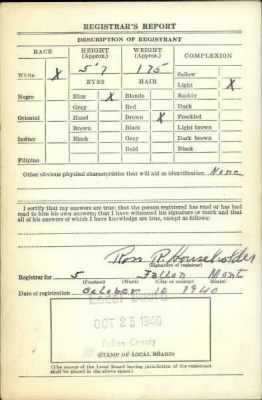 REGISTRAR'S REPORT
DESCRIPTION OF REGISTRANT
RACE HEIGHT (Approx.) WEIGHT (Approx.) COMPLEXION
5'7 175
White X EYES HAIR Sallow
Light X
Negro Blue X Blonde Ruddy
Gray Red Dark
Oriental Hazel Brown X Freckled
Brown Black Light brown
Indian Black Gray Dark brown
Bald Black
Filipino
Other obvious physical characteristics that will aid in identification None
I certify that my answers are true; that the person registered has read or has had
read to him his own answers; that I have witnessed his signature or mark and that
all of his answers of which I have knowledge are true, except as follows:
Ross R. Householder
(Signature of registrar)
Registrar for 5 Fallon Mont
(Precinct) (Ward) (City or county) (State)
Date of registration October 16 1940
Local Board
OCT 25 1940
County
STAMP OF LOCAL BOARD
(The stamp of the Local Board having jurisdiction of the registrant
shall be placed in the above space.)